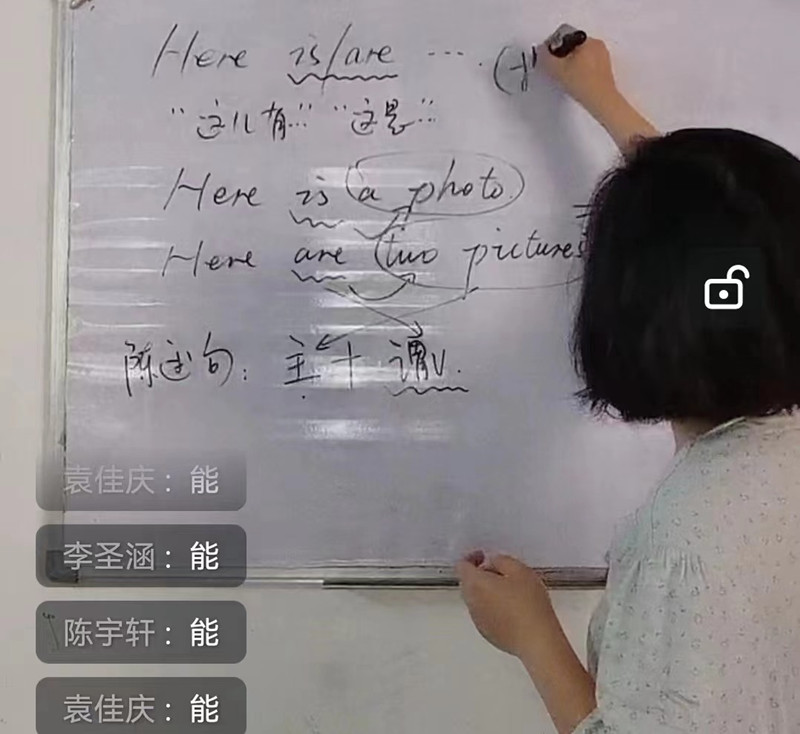 Here is/are ....
“这儿有…” “这是…”
Here is a photo.
Here are two pictures
陈述句：主 + 谓V.
袁佳庆：能
李圣涵：能
陈宇轩：能
袁佳庆：能